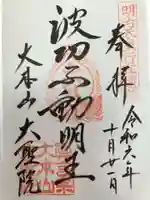 奉拝
令和六年
十月廿一日
波切不動明王
大本山 大聖院